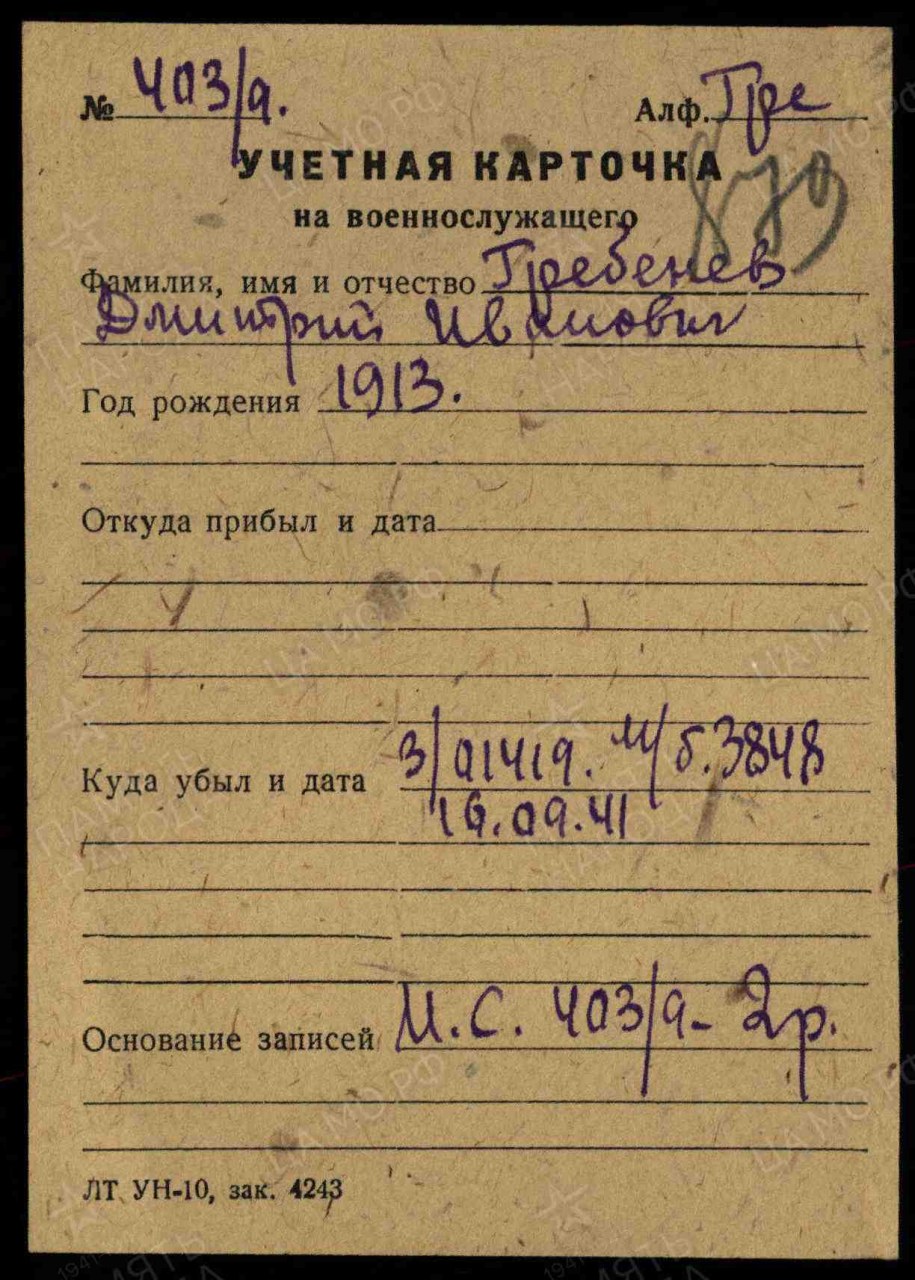 № 403/а. Алф. Гре
УЧЕТНАЯ КАРТОЧКА
на военнослужащего
879
Фамилия, имя и отчество Гребенев
Дмитрий Иванович
Год рождения 1913.
Откуда прибыл и дата
Куда убыл и дата З/01419. м/б. 3848
16.09.41
Основание записей И.С. 403/а - 2р.
ЛТ УН-10, зак. 4243